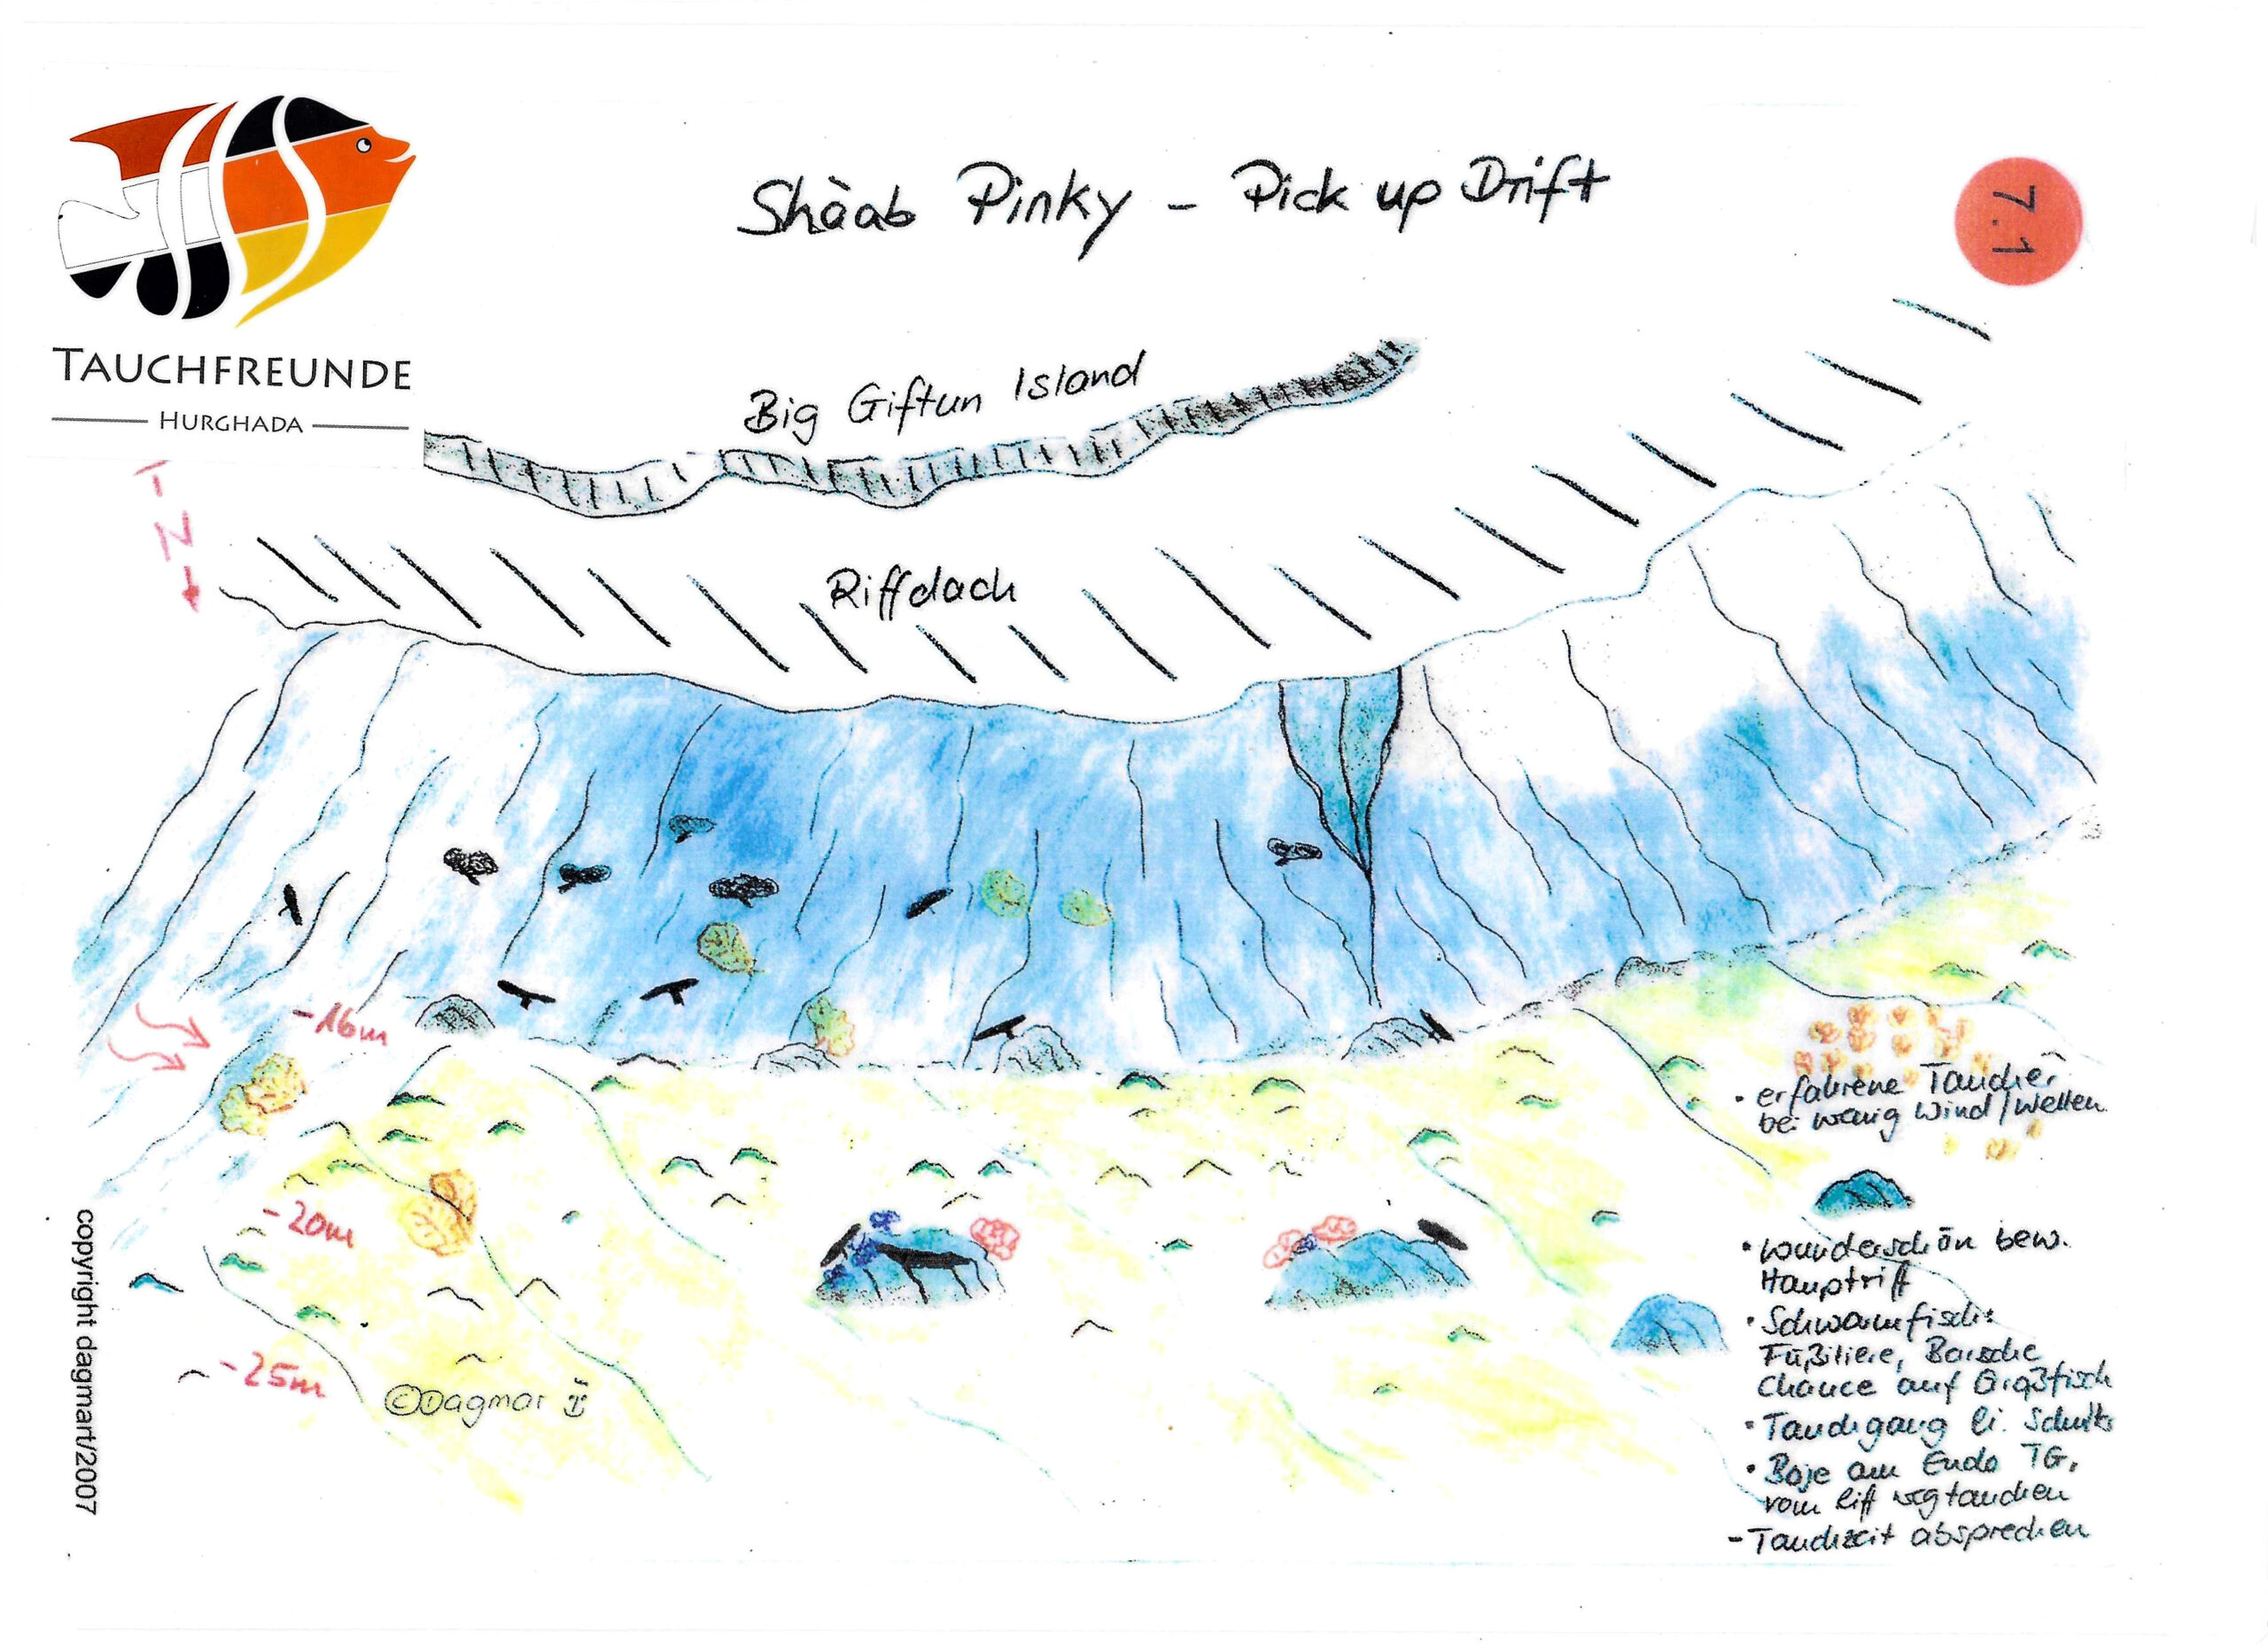 Shàab Pinky - Pick up Drift
7.1
TAUCHFREUNDE
HURGHADA
Big Giftun Island
N
Riffdach
-16m
-20m
-25m
©Dagmar
copyright dagmart/2007
• erfahrene Taucher
bei wenig Wind/Wellen
• wunderschön bew.
Hauptriff
• Schwarmfische
Füßiliere, Barsche
Chance auf Großfisch
• Tauchgang li. Schulter
• Boje am Ende TG,
vom Riff wegtauchen
- Tauchzeit absprechen